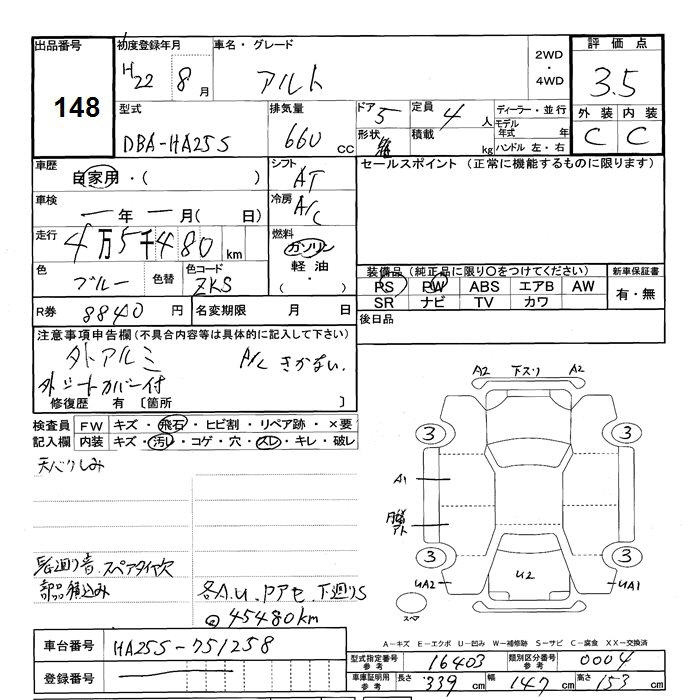 出品番号
148
初度登録年月
H22 8月
車名・グレード
アルト
2WD
・
4WD
評価点
3.5
外装 内装
C C
型式
DBA-HA25S
排気量
660cc
ドア 5
形状 箱
定員 4人
積載 kg
ディーラー・並行
モデル年式 年
ハンドル 左・右
車歴
自家用・( )
シフト
AT
セールスポイント (正常に機能するものに限ります)
車検
年 月( 日)
冷房
A/C
走行
4万5千480km
燃料
ガソリン
軽油
・( )
色
ブルー
色替
色コード
ZKS
装備品(純正品に限り○をつけてください)
PS PW ABS エアB AW
SR ナビ TV カワ
新車保証書
有・無
R券 8840円
名変期限 月 日
後日品
注意事項申告欄(不具合内容等は具体的に記入して下さい)
外アルミ A/C きかない.
外シートカバー付
修復歴 有 〔箇所 〕
検査員記入欄
FW キズ・飛石・ヒビ割・リペア跡・×要
内装 キズ・汚レ・コゲ・穴・スレ・キレ・破レ
天バリしみ
スペアタイヤ欠
部品積込み
各A.U.Pアセ.下廻りS
@45480km
A2 下スリ A2
3 3
A1
3 3
UA2 U2 UA1
スペア
A-キズ E-エクボ U-凹み W-補修跡 S-サビ C-腐食 XX-交換済
車台番号 HA25S-751258
登録番号
型式指定番号 参考 16403
類別区分番号 参考 0004
車庫証明用 参考 長さ 339cm 幅 147cm 高さ 153cm